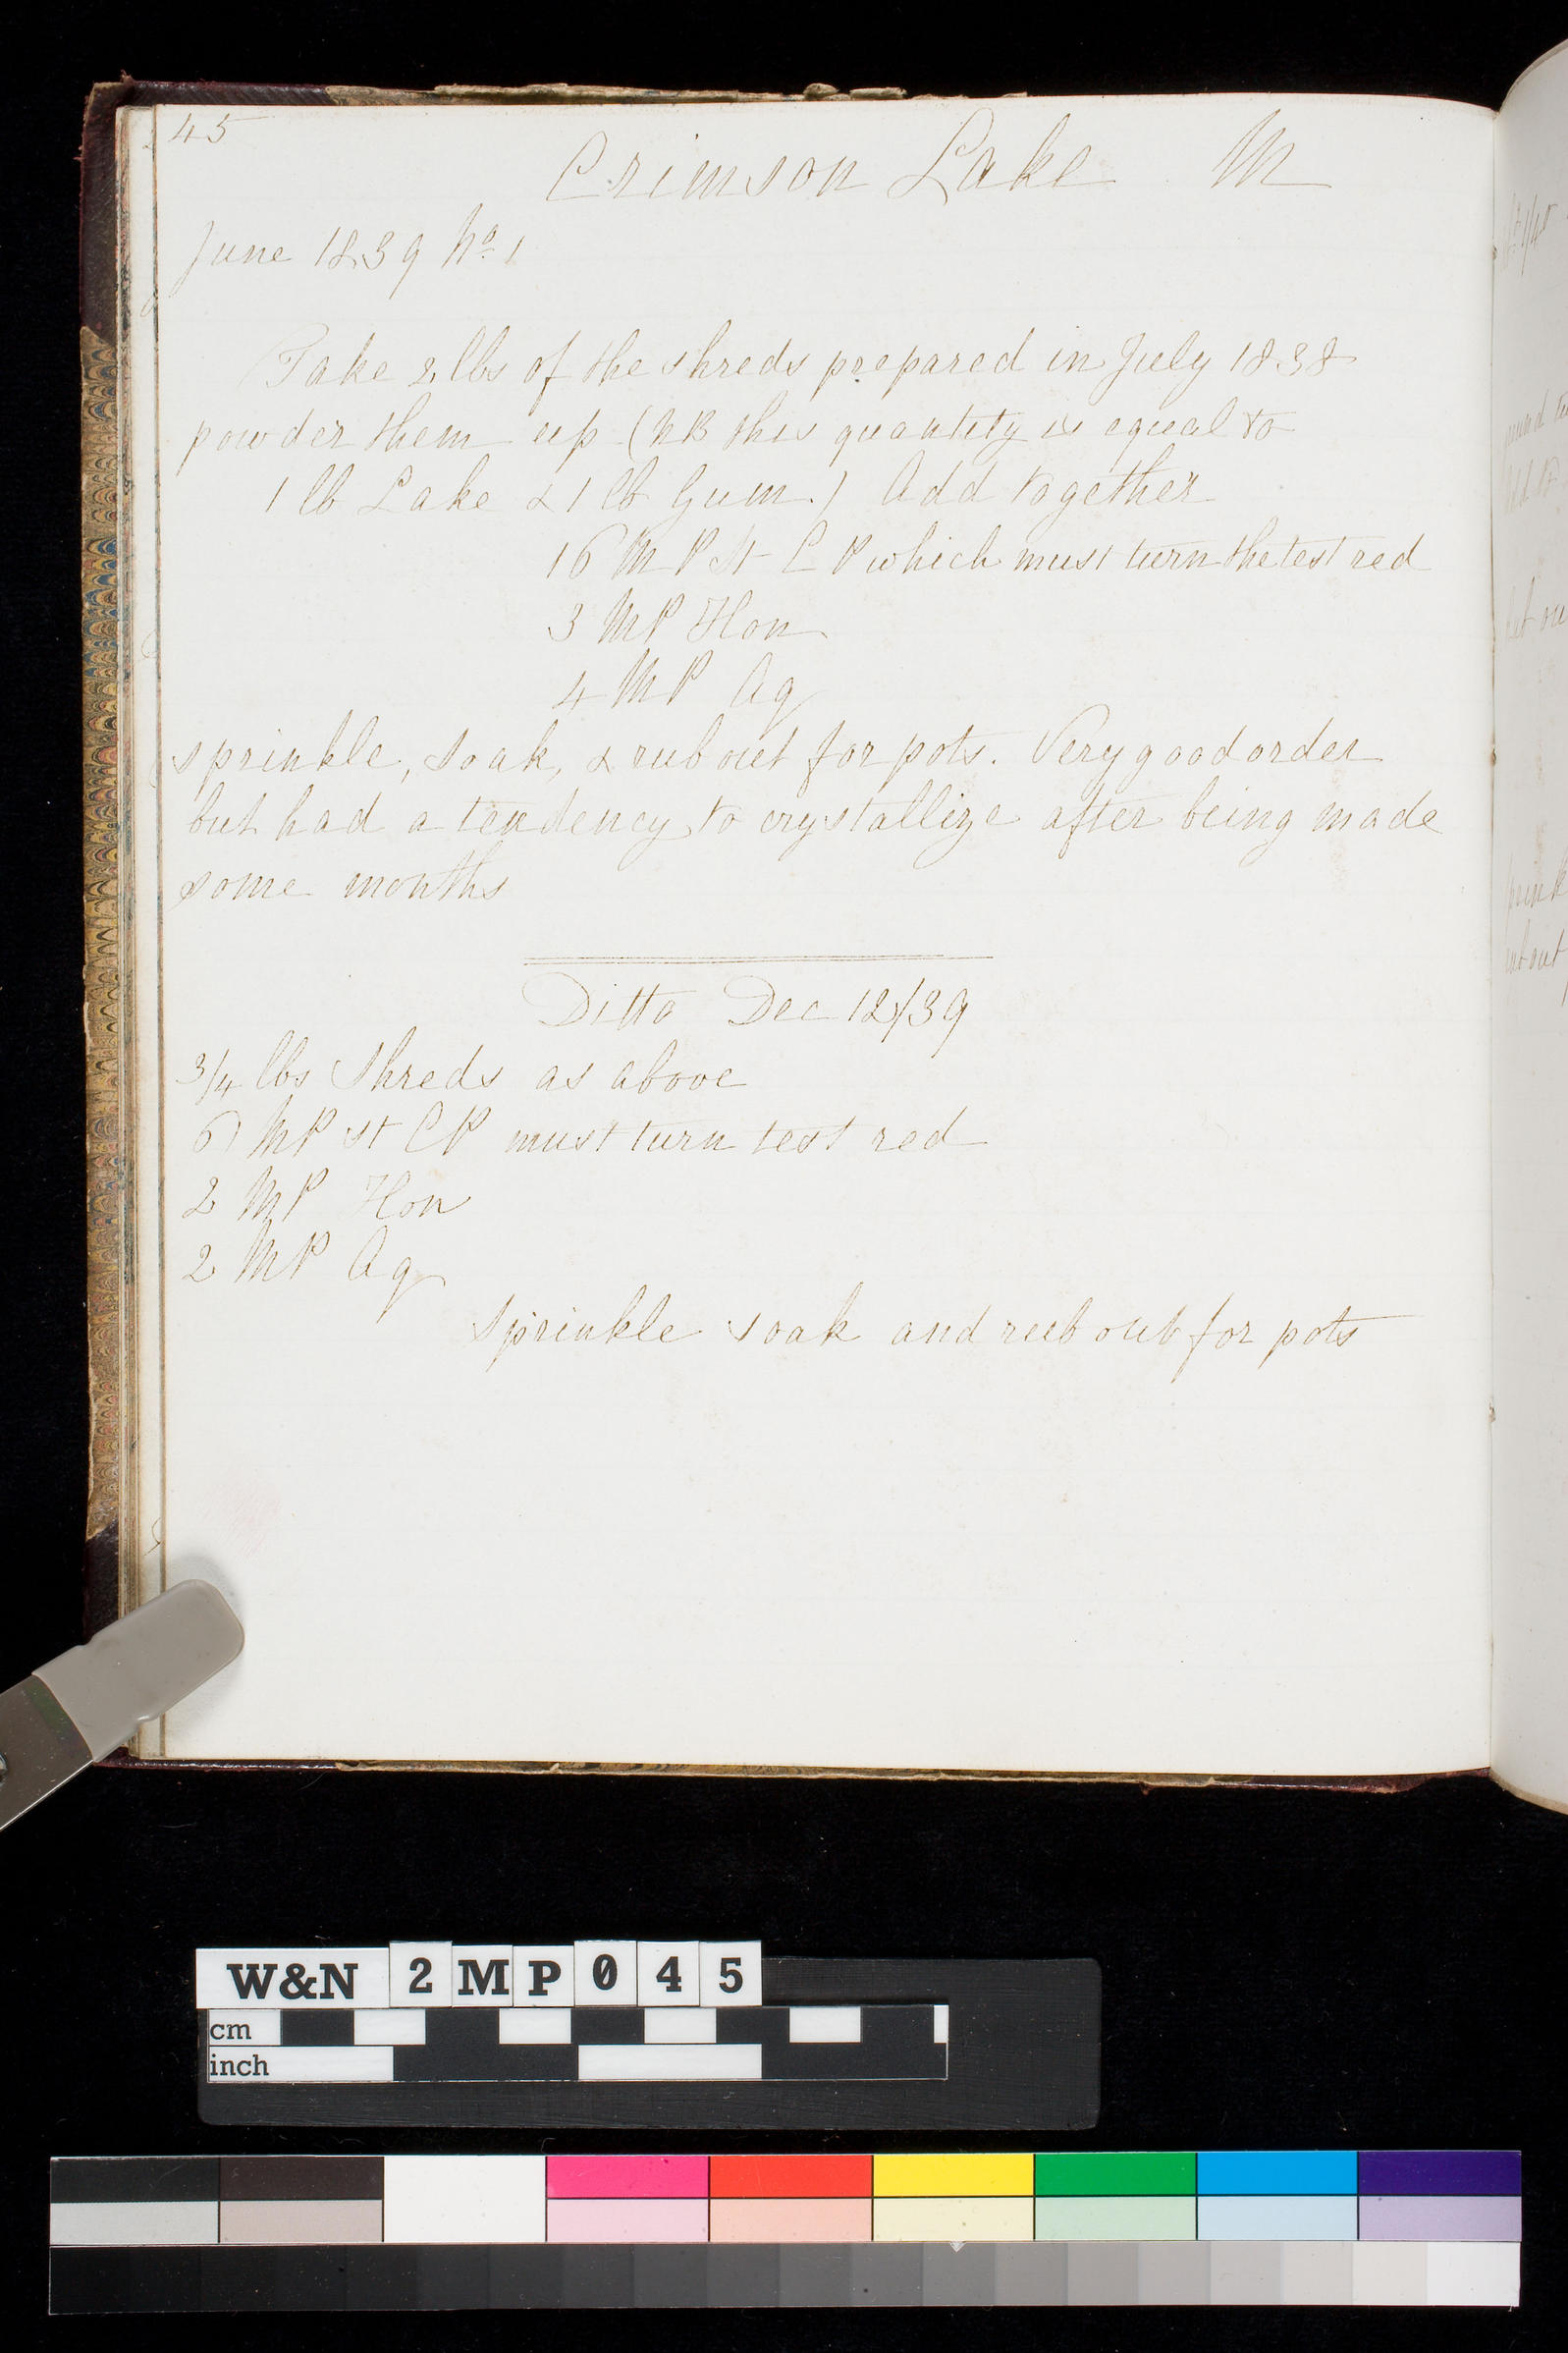 45
Crimson Lake M
June 1839 No. 1
Take 2 lbs of the shreds prepared in July 1838
powder them up (NB this quantity is equal to
1 lb Lake & 1 lb Gum.) Add together
16 MP St CP which must turn the test red
3 MP Hon
4 MP Aq
sprinkle, soak, & rub out for pots. Very good order
but had a tendency to crystallize after being made
some months
Ditto Dec 12/39
3/4 lbs Shreds as above
6 MP St CP must turn test red
2 MP Hon
2 MP Aq
Sprinkle soak and rub out for pots
W&N 2MP045
cm
inch